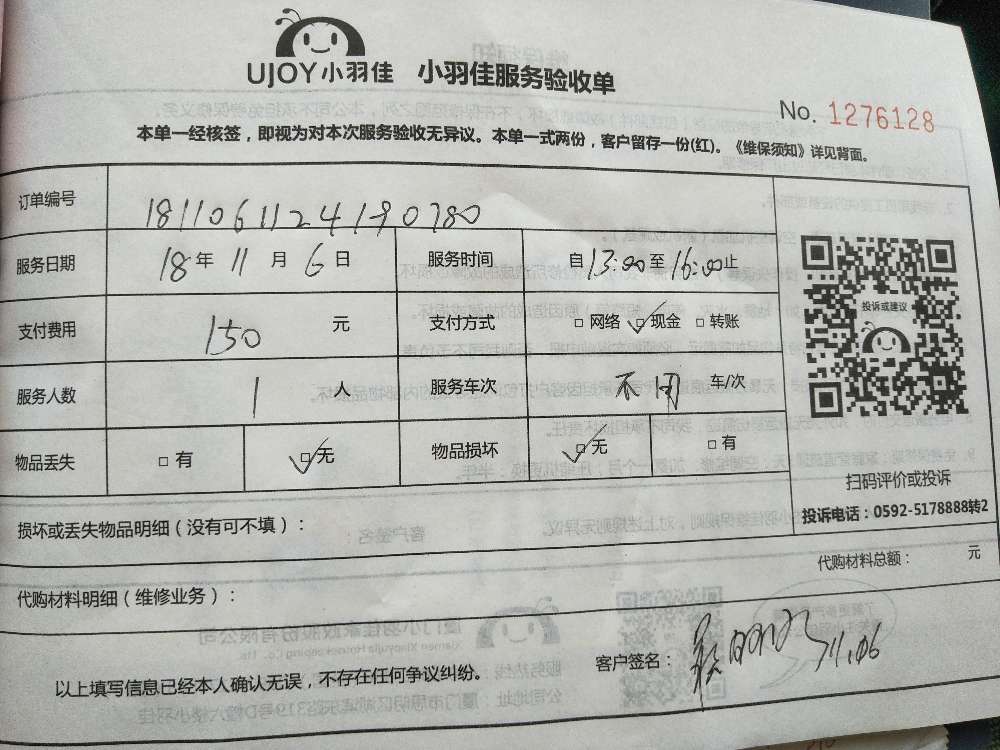 UJOY小羽佳 小羽佳服务验收单
No. 1276128
本单一经核签，即视为对本次服务验收无异议。本单一式两份，客户留存一份(红)。《维保须知》详见背面。
订单编号 1811061124190780
服务日期 18年 11月 6日 服务时间 自13:00至16:00止
支付费用 150 元 支付方式 □网络 ☑现金 □转账
服务人数 1 人 服务车次 车/次
物品丢失 □有 ☑无 物品损坏 ☑无 □有
投诉或建议
扫码评价或投诉
投诉电话：0592-5178888转2
损坏或丢失物品明细（没有可不填）：
代购材料总额： 元
代购材料明细（维修业务）：
客户签名： 11.06
以上填写信息已经本人确认无误，不存在任何争议纠纷。